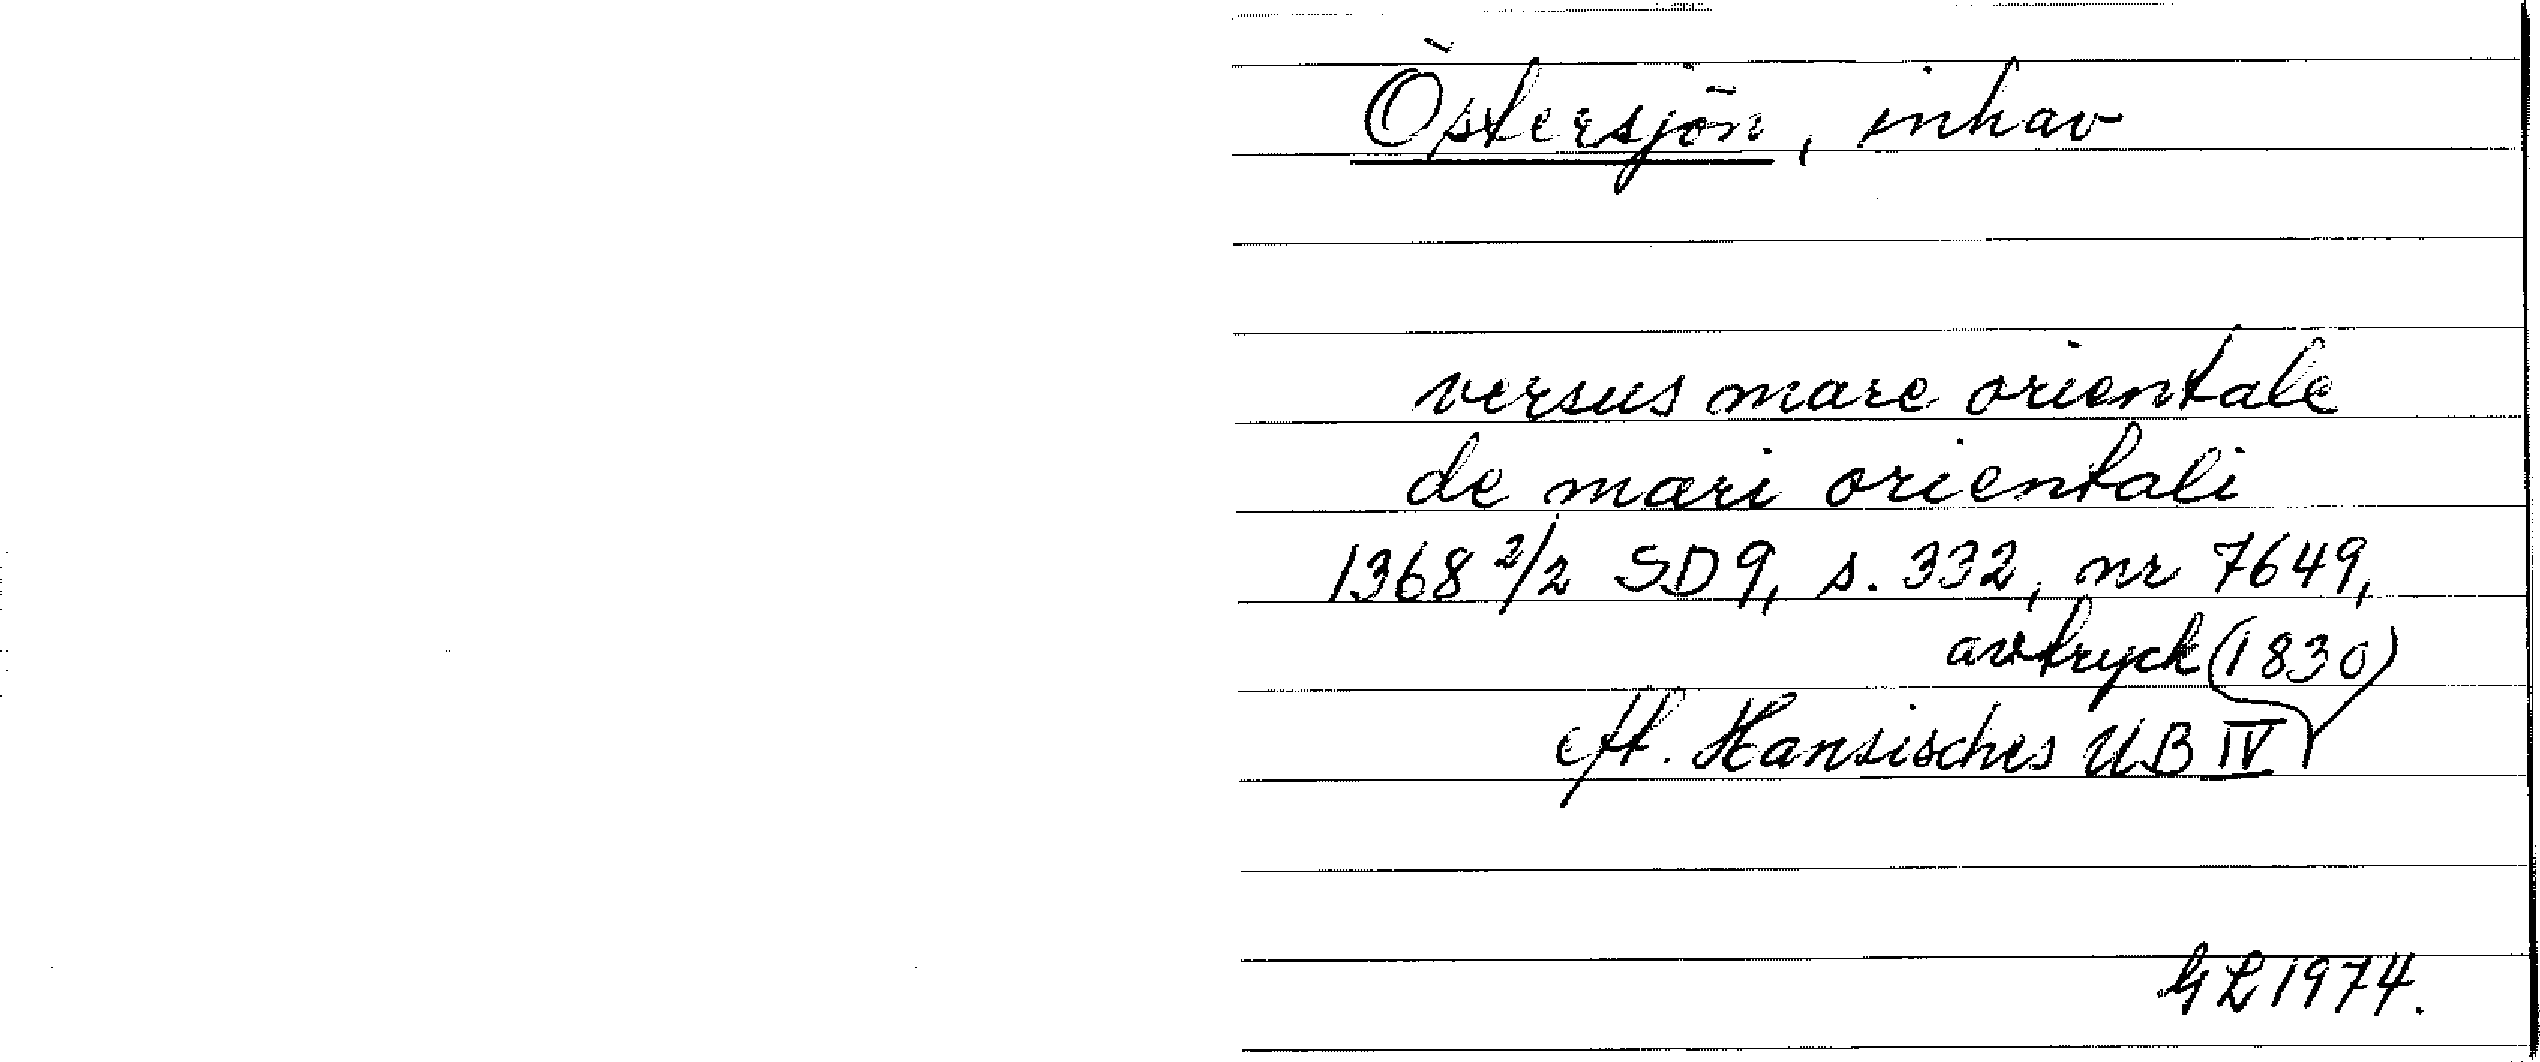 Östersjön, inhav
versus mare orientale
de mari orientali
1368 2/2 SD9, s. 332, nr 7649,
avtryck (1830)
eft. Hansisches UB IV
GL 1974.